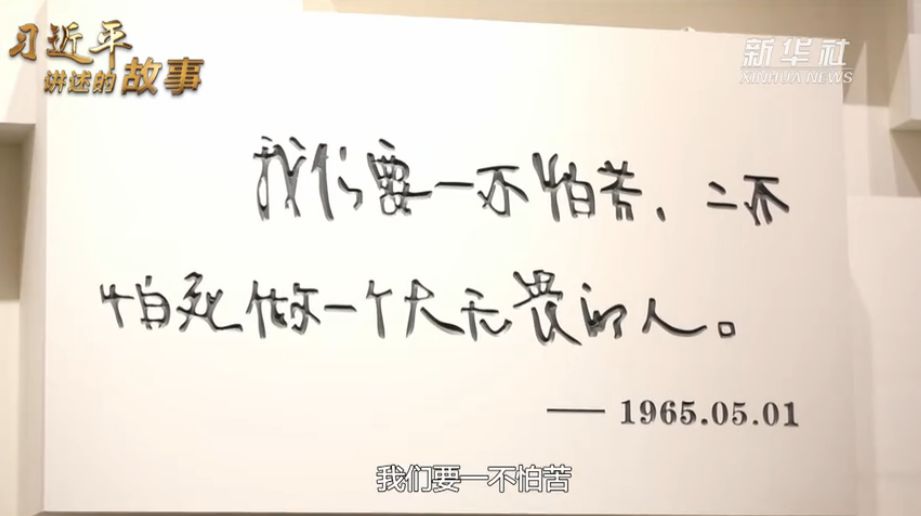 习近平
讲述的故事
新华社
XINHUA NEWS
我们要一不怕苦、二不
怕死做一个大无畏的人。
—— 1965.05.01
我们要一不怕苦